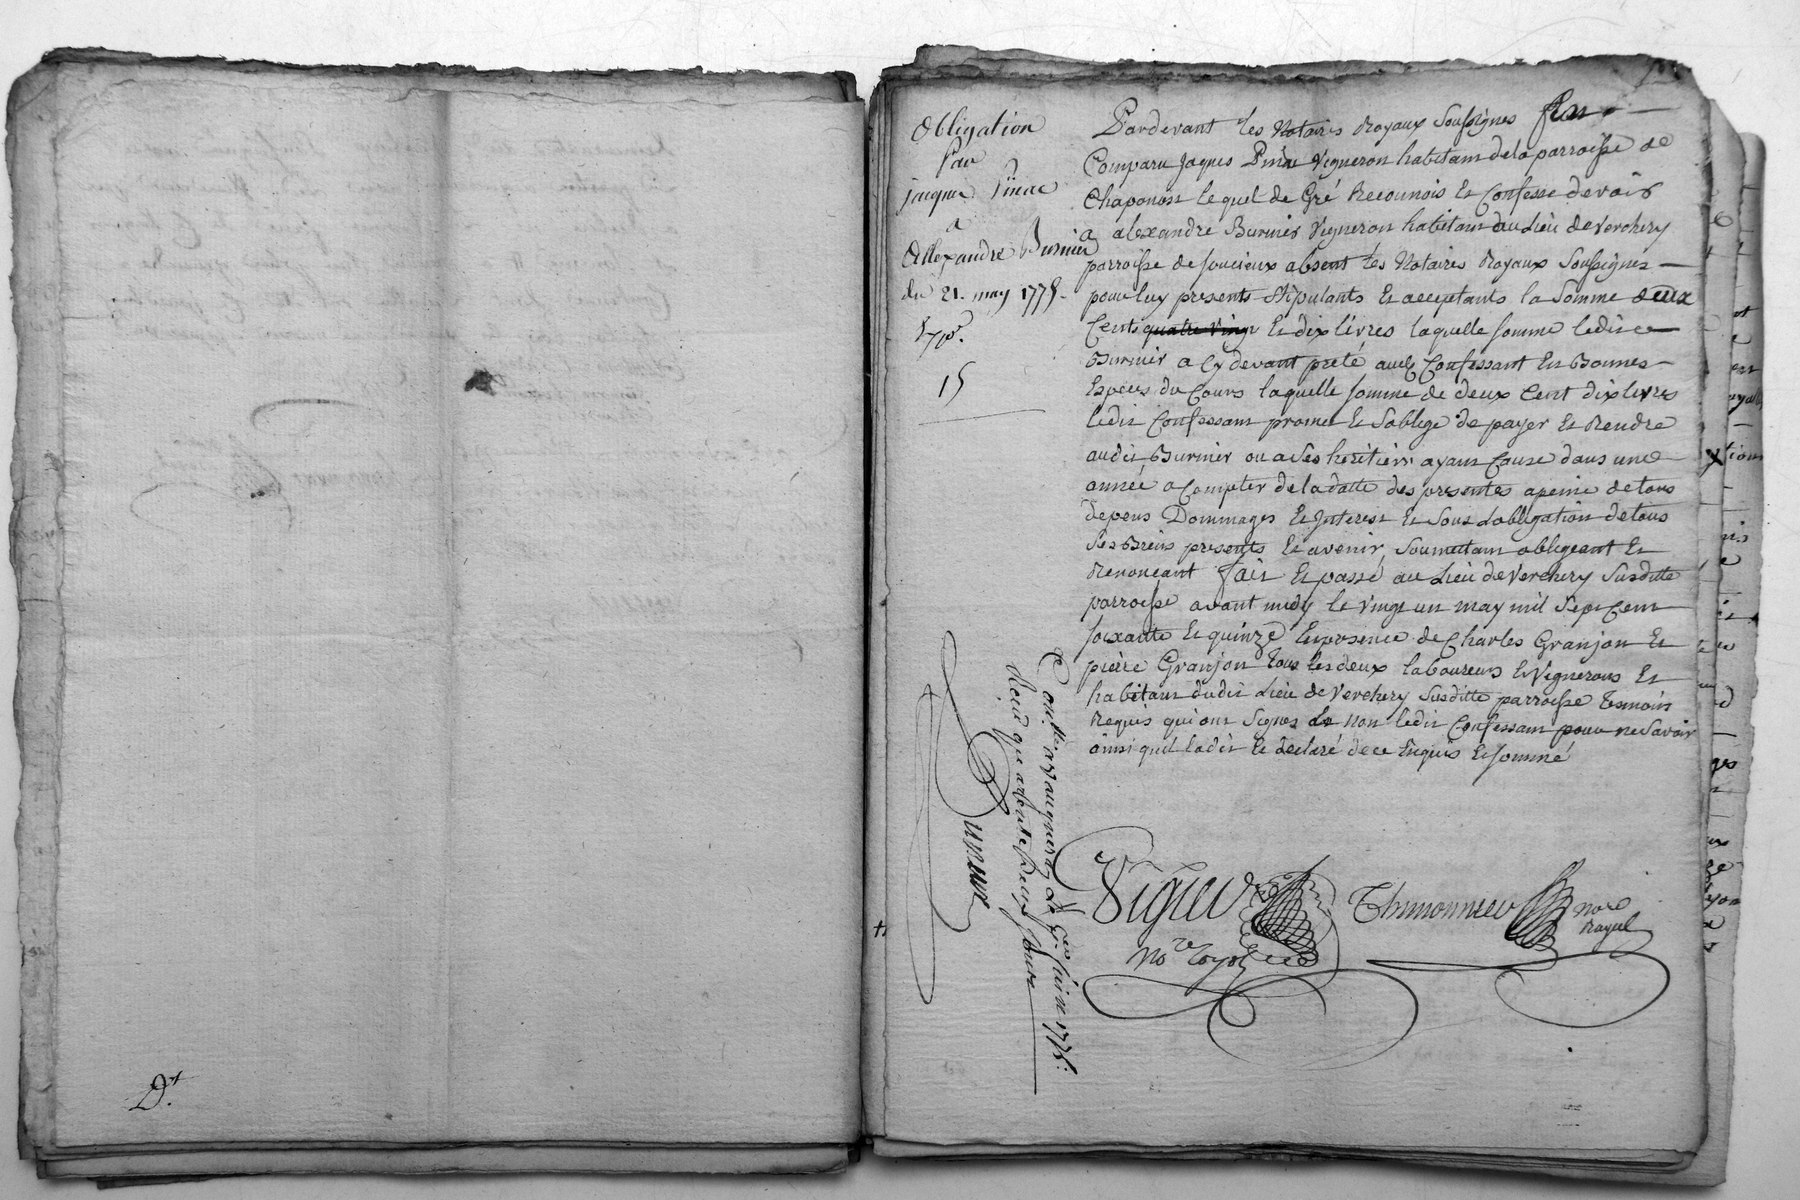 D.t
Obligation
Par
jacque Pinac
a
Allexandre Burnier
du 21. may 1775.
15
Pardevant les Notaires Royaux Soussignes fut
Comparu Jaques Vigneron habitant dela parroisse de
Chaponost lequel de Gré Reconnois et Confesse devoir
a alexandre Burnier Vigneron habitant du Lieu de Verchery
parroisse de Soucieux absent les Notaires Royaux Soussignes
pour luy presents Stipulants et acceptants la Somme deux
Cents quatre vingt et dix livres laquelle somme ledit
Burnier a Cy devant preté audt Confessant en Bonnes
Especes du Cours laquelle somme de deux Cent dix livres
ledit Confessant promet et Soblige de payer et Rendre
audit Burnier ou a Ses heritiers ayant Cause dans une
année a Compter de la datte des presentes a peine de tous
depens Dommages et Interest et Sous Lobligation de tous
Ses Biens presents et avenir, Soumettant obligeant et
Renonçant fait et passé au Lieu de Verchery Susditte
parroisse avant midy le vingt un may mil Sept Cent
soixante et quinze En presence de Charles Granjon et
pierre Granjon tous les deux laboureurs et Vignerons et
habitant dudit Lieu de Verchery Susditte parroisse Temoins
Requis qui ont Signes et non ledit Confessant pour ne Savoir
ainsi quil la dit et declaré de ce Enquis et Sommé
Viguer
No.re royal
Thimonnier
no.re
Royal
C onlle a vaugneray Le 1er Juin 1775.
Reçu quarente deux sous